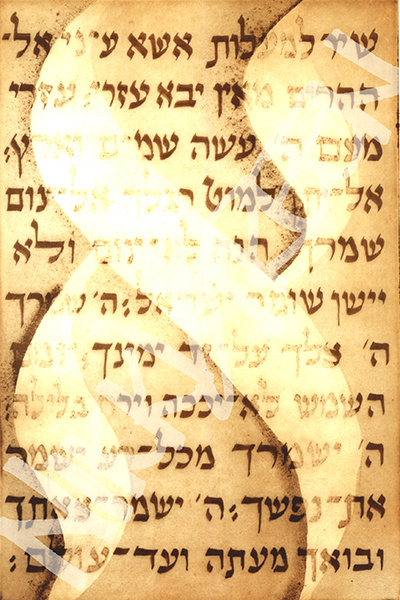 שיר למעלות אשא עיני אל־
ההרים מאין יבא עזרי׃ עזרי
מעם ה׳ עשה שמים וארץ׃
אל־יתן למוט רגלך אל־ינום
שמרך הנה לא ינום ולא
יישן שומר ישראל׃ ה׳ שמרך
ה׳ צלך על־יד ימינך יומם
השמש לא־יככה וירח בלילה
ה׳ ישמרך מכל־רע ישמר
את־נפשך׃ ה׳ ישמר־צאתך
ובואך מעתה ועד־עולם׃